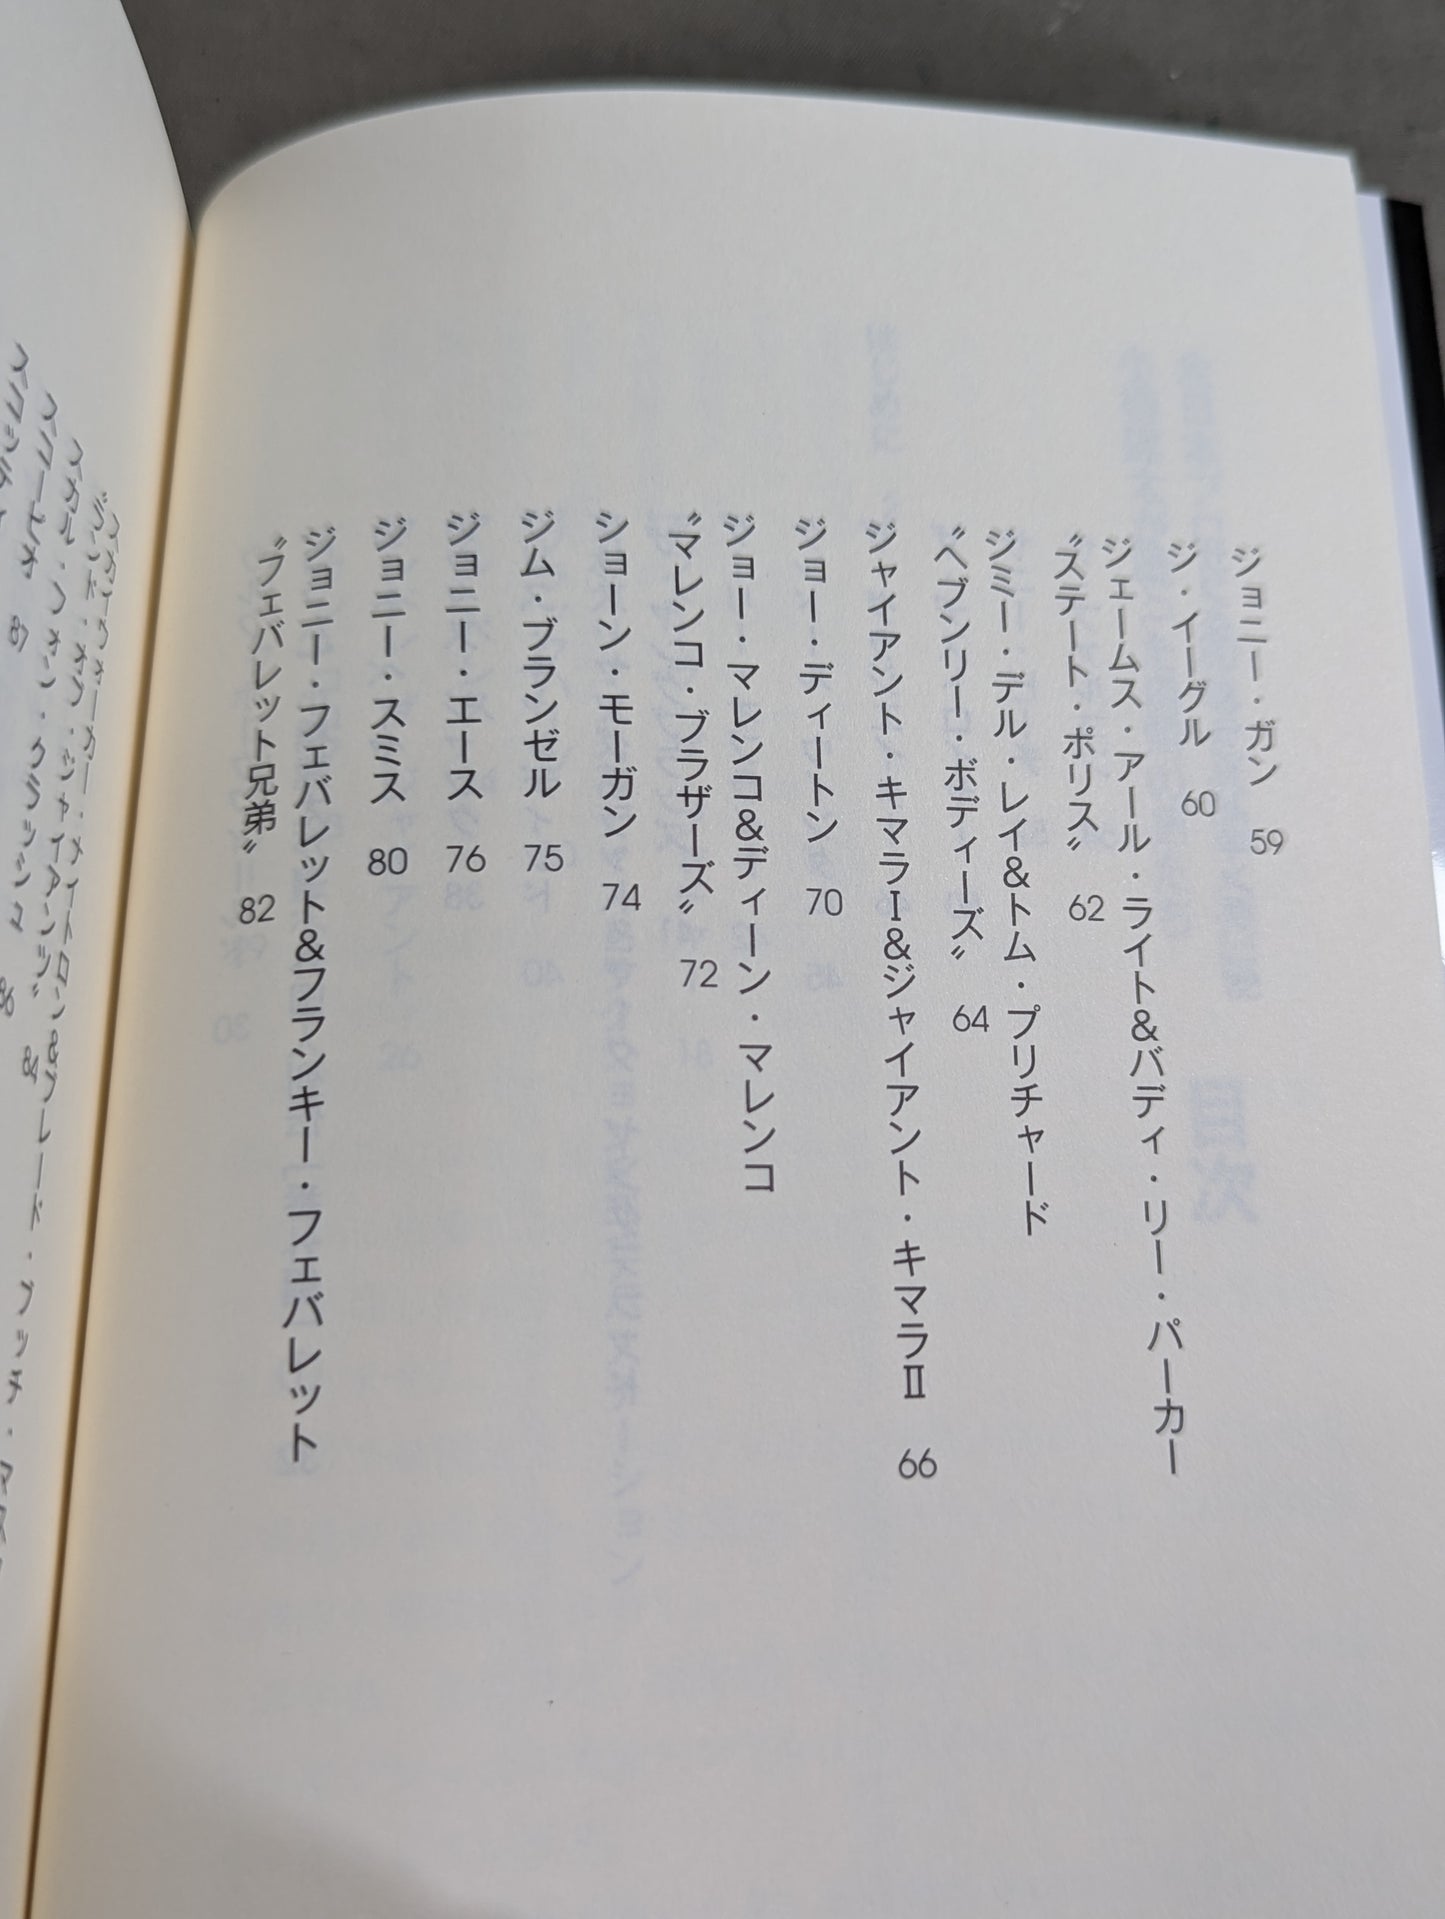 ジョニー・ガン 59
ジ・イーグル 60
ジェームス・アール・ライト&バディ・リー・パーカー
〝ステート・ポリス〟 62
ジミー・デル・レイ&トム・プリチャード
〝ヘブンリー・ボディーズ〟 64
ジャイアント・キマラⅠ&ジャイアント・キマラⅡ 66
ジョー・ディートン 70
ジョー・マレンコ&ディーン・マレンコ
〝マレンコ・ブラザーズ〟 72
ショーン・モーガン 74
ジム・ブランゼル 75
ジョニー・エース 76
ジョニー・スミス 80
ジョニー・フェバレット&フランキー・フェバレット
〝フェバレット兄弟〟 82